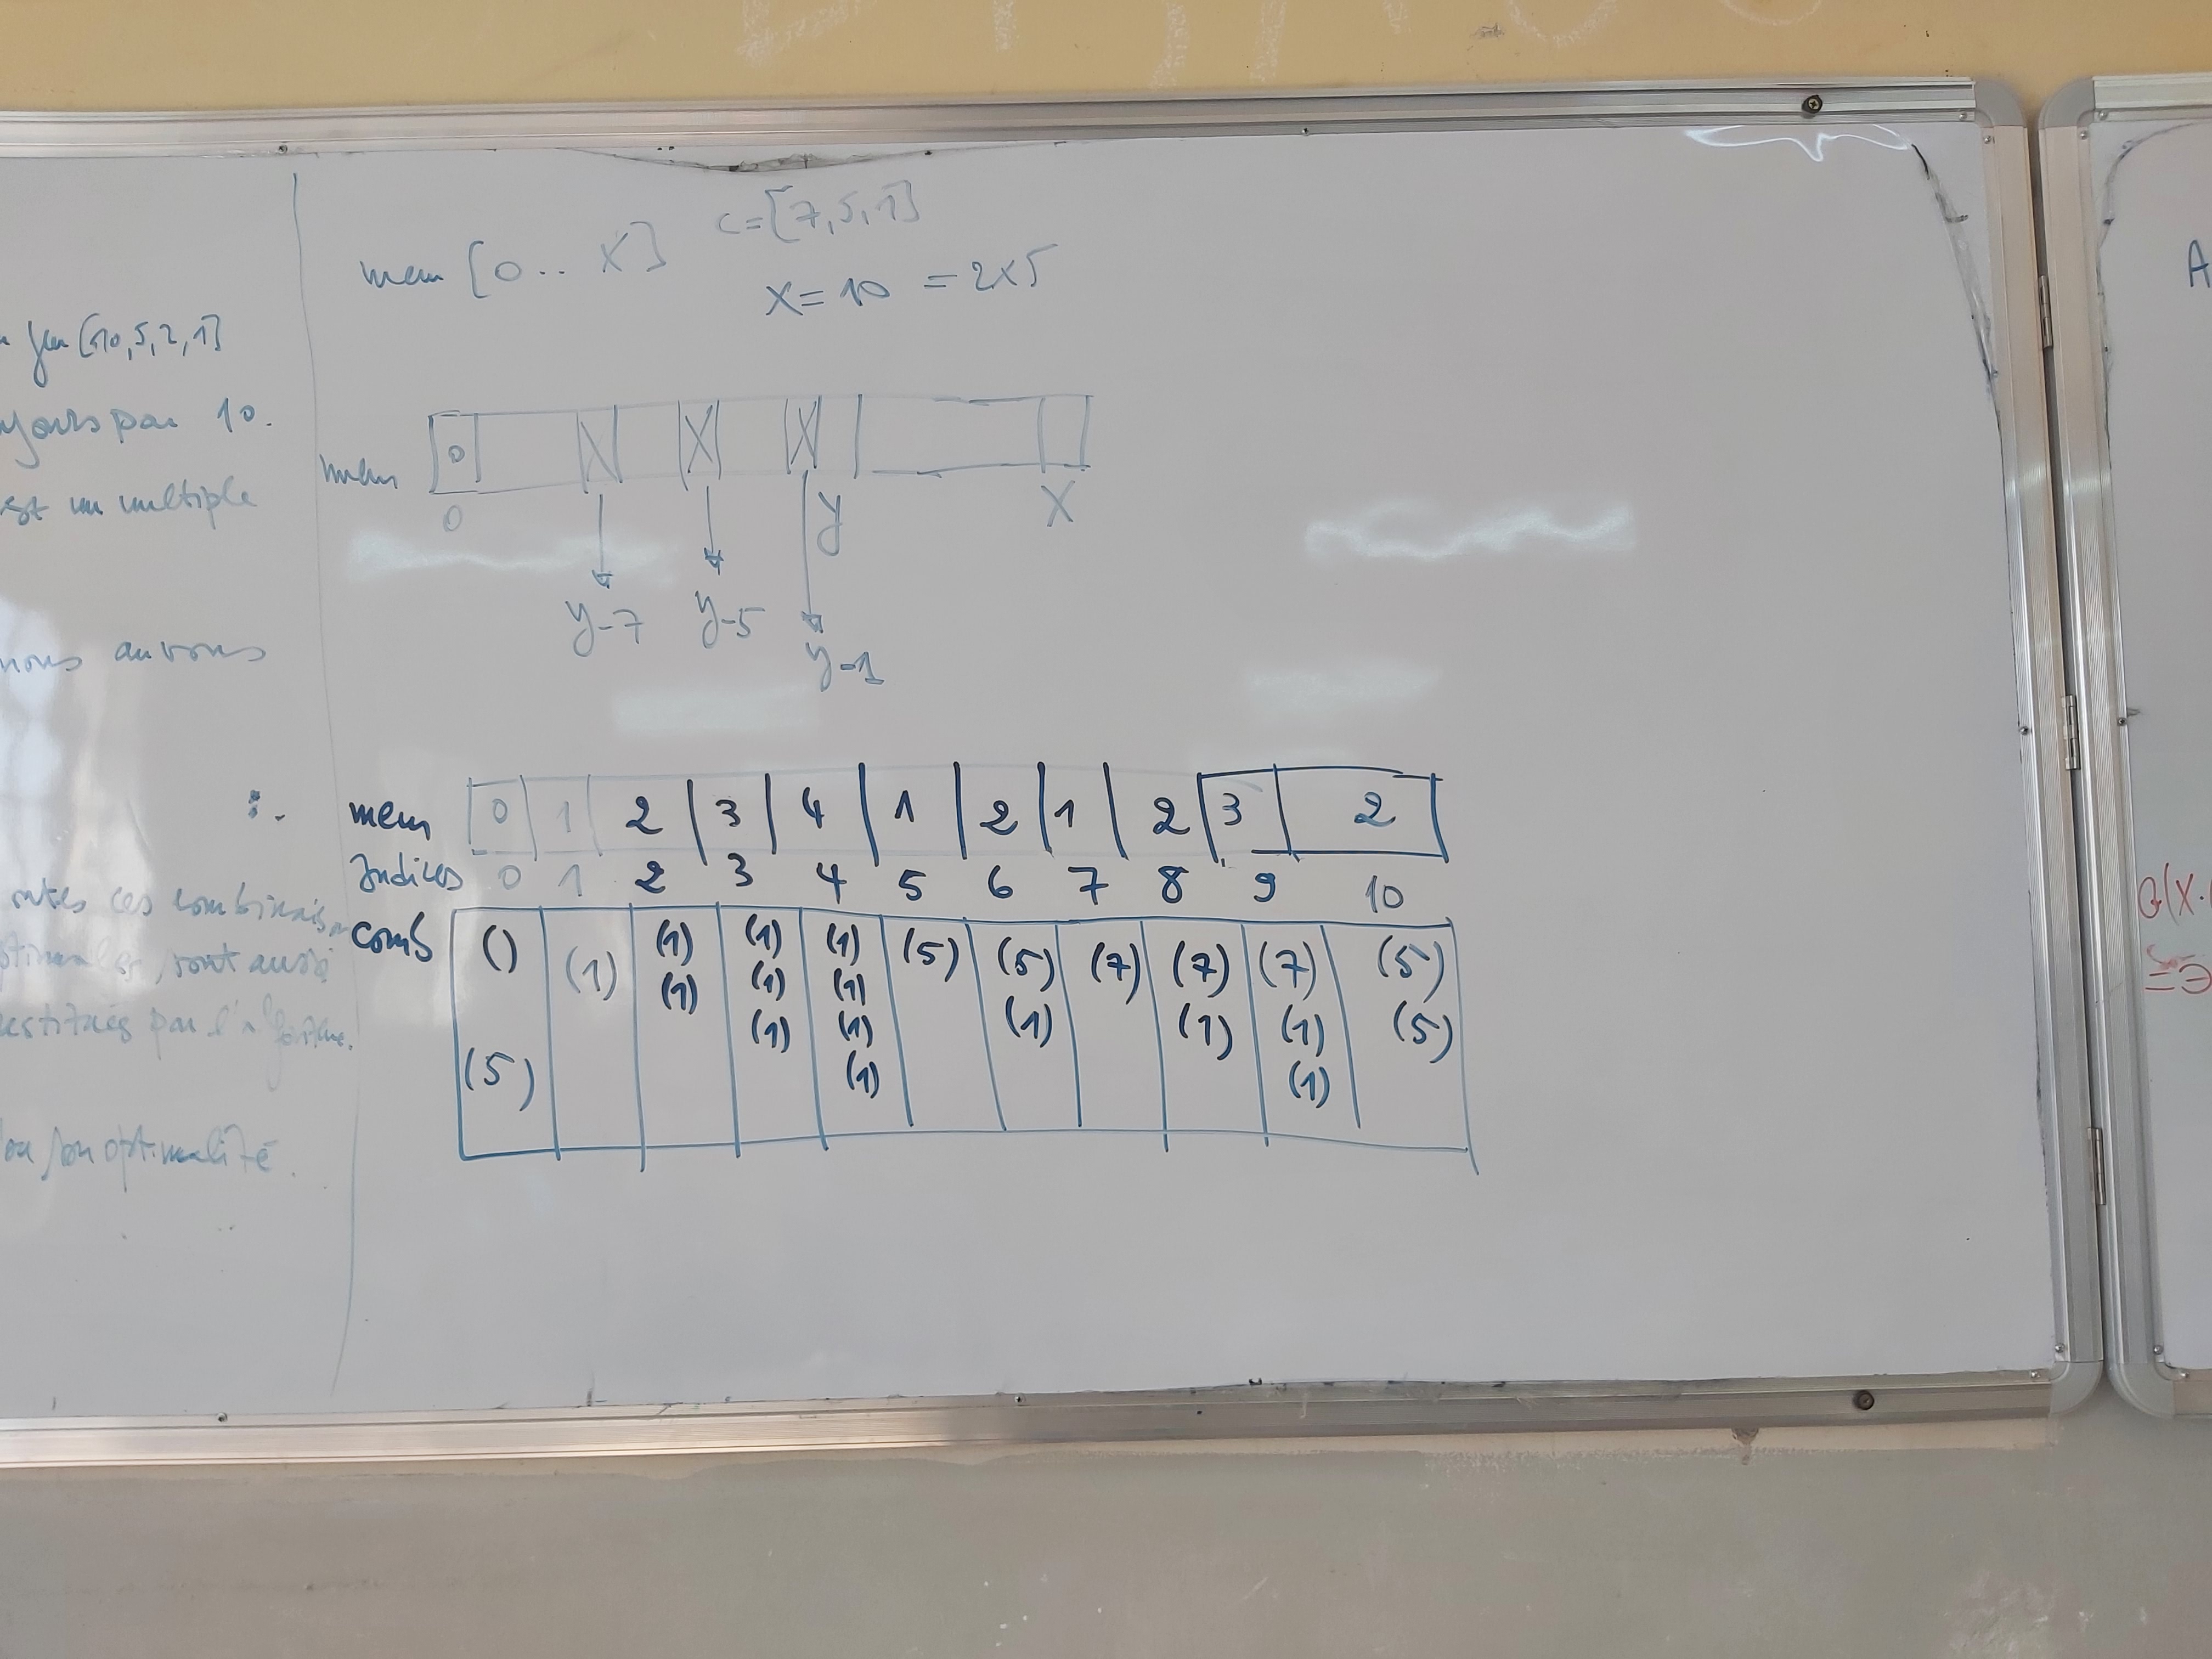 [10,5,2,1]
par 10.
est un multiple
nous aurons
:.
toutes ces combinais
sont aussi
restitués par l'algorithme.
ou son optimalité.
mem [0 .. X]
c=[7,5,1]
X = 10 = 2x5
mem 0
0 y X
y-7 y-5 y-1
mem 0 1 2 3 4 1 2 1 2 3 2
Indices 0 1 2 3 4 5 6 7 8 9 10
comb () (1) (1) (1) (1) (5) (5) (7) (7) (7) (5)
(1) (1) (1) (1) (1) (1) (5)
(1) (1) (1)
(5) (1)
A